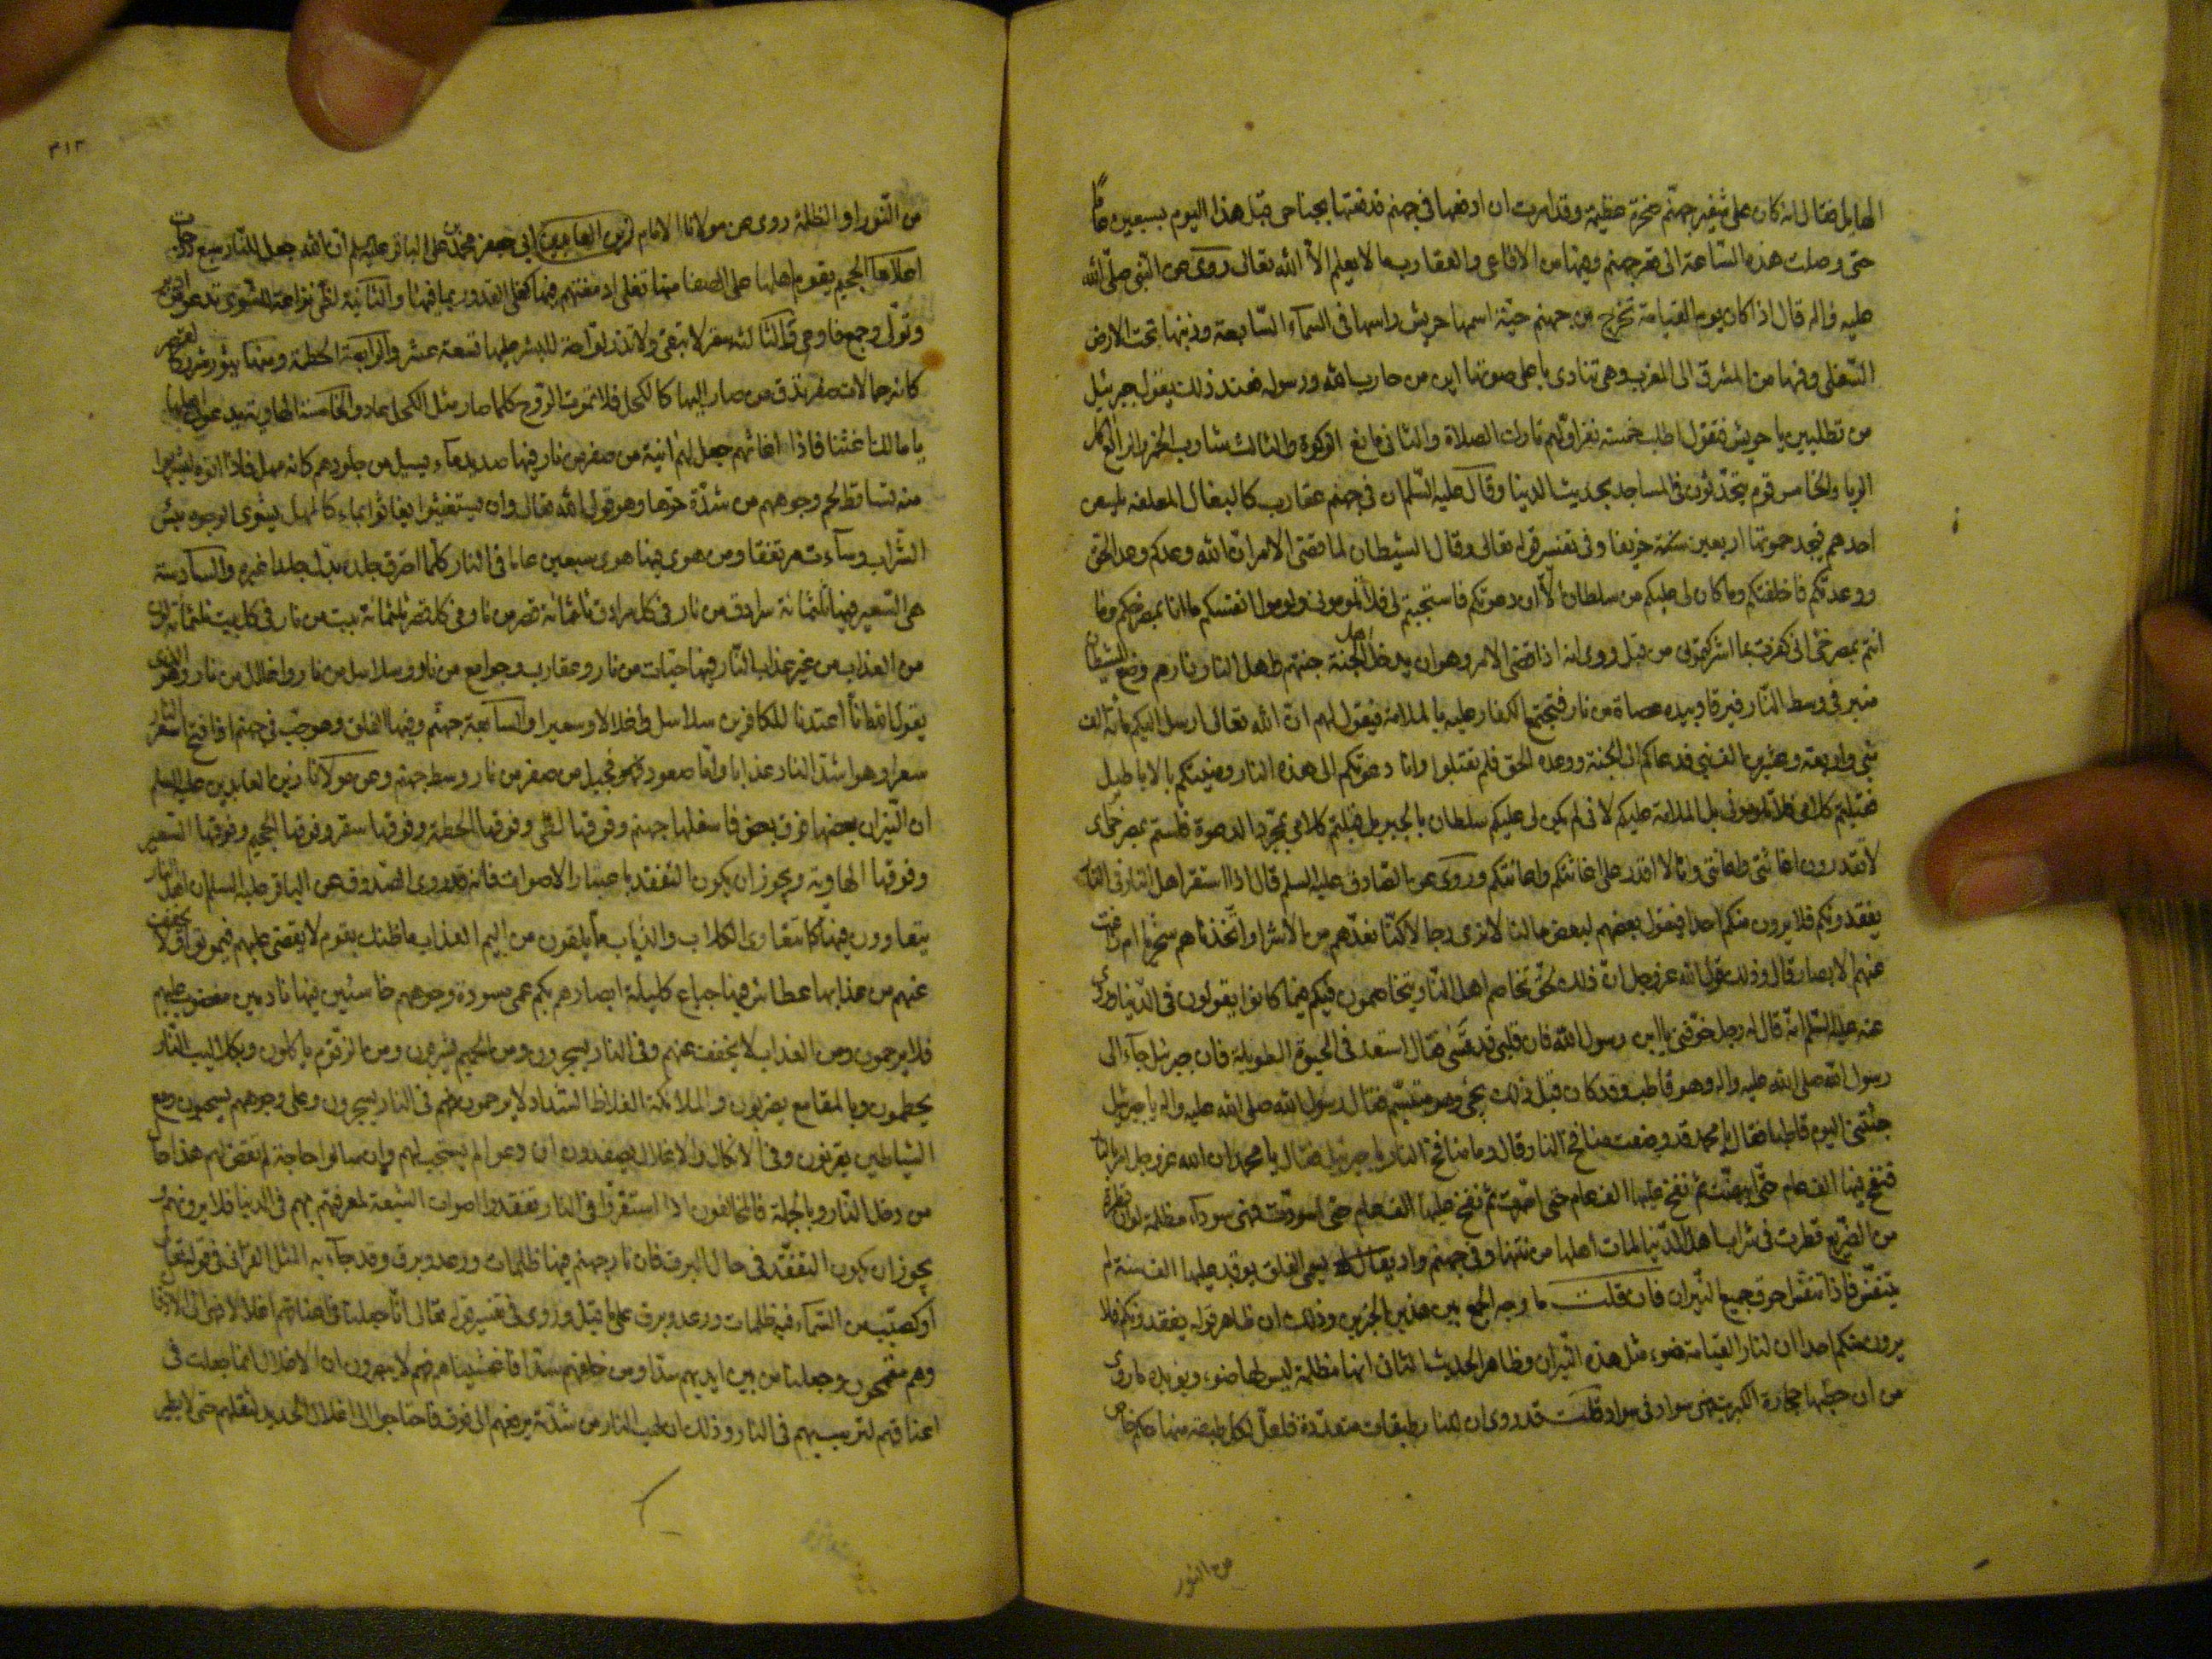 الهايل فقال انه كان على شفير جهنم صخرة عظيمة وقد امرت ان ادفعها في جهنم فدفعتها بجناحي قبل هذا اليوم بسبعين عاما
حتى وصلت هذه الساعة الى قعر جهنم وفيها من الافاعي والعقارب ما لا يعلم الا الله تعالى روى عن النبي صلى الله
عليه واله قال اذا كان يوم القيامة تخرج من جهنم حية اسمها حريش راسها في السماء السابعة وذنبها تحت الارض
السفلى وفمها من المشرق الى المغرب وهي تنادي باعلى صوتها اين من حارب الله ورسوله فعند ذلك يقول جبرئيل
من تطلبين يا حريش فتقول اطلب خمسة نفر اولهم تارك الصلاة والثاني مانع الزكوة والثالث شارب الخمر والرابع اكل
الربا والخامس قوم يتحدثون في المساجد بحديث الدنيا وقال عليه السلم ان في جهنم عقارب كالبغال المعلفة يلسعن
احدهم فيجد حموتها اربعين سنة خريفا وفي تفسير قوله تعالى وقال الشيطان لما قضى الامر ان الله وعدكم وعد الحق
ووعدتكم فاخلفتكم وما كان لي عليكم من سلطان الا ان دعوتكم فاستجبتم لي فلا تلوموني ولوموا انفسكم ما انا بمصرخكم وما
انتم بمصرخي اني كفرت بما اشركتمون من قبل روى انه اذا قضى الامر وهو ان يدخل اهل الجنة جنتهم واهل النار نارهم وضع للشيطان
منبر في وسط النار فيرقاه وبيده عصاة من نار فتجتمع الكفار عليه بالملامة فيقول لهم ان الله تعالى ارسل اليكم مائة الف
نبي واربعة وعشرين الف نبي فدعاكم الى الجنة ووعده الحق فلم تقبلوا وانا دعوتكم الى هذه النار ومنيتكم بالاباطيل
فقبلتم كلامي فلا تلوموني بل الملامة عليكم لاني لم يكن لي عليكم سلطان بالجبر بل قبلتم كلامي بمجرد الدعوة فلستم بمصرخي اي
لا تقدرون اغاثتي واعانتي وانا لا اقدر على اغاثتكم واعانتكم وروى عن الصادق عليه السلم قال اذا استقر اهل النار في النار
يفقدونكم فلا يرون منكم احدا فيقول بعضهم لبعض ما لنا لا نرى رجالا كنا نعدهم من الاشرار اتخذناهم سخريا ام زاغت
عنهم الابصار قال وذلك قول الله عز وجل ان ذلك لحق تخاصم اهل النار يتخاصمون فيكم فيما كانوا يقولون في الدنيا وروى
عنه عليه السلم انه قال له رجل خوفني يا ابن رسول الله فان قلبي قد قسى فقال استعد في الحيوة الطويلة فان جبرئيل جاء الى
رسول الله صلى الله عليه واله وهو قاطب وقد كان قبل ذلك يجئ وهو متبسم فقال رسول الله صلى الله عليه واله يا جبرئيل
جئتني اليوم قاطبا فقال يا محمد قد وضعت منافخ النار قال وما منافخ النار يا جبرئيل فقال يا محمد ان الله عز وجل امر بالنار
فنفخ فيها الف عام حتى ابيضت ثم نفخ عليها الف عام حتى احمرت ثم نفخ عليها الف عام حتى اسودت فهي سوداء مظلمة لو ان قطرة
من الضريع قطرت في شراب اهل الدنيا لمات اهلها من نتنها وفي جهنم واد يقال له يسمى الفلق يوقد عليها الف سنة لم
يتنفس فاذا تنفس احرق جميع النيران فان قلت ما وجه الجمع بين هذين الخبرين وذلك ان ظاهر قوله يفقدونكم فلا
يرون منكم احدا ان لنار القيامة ضوء مثل هذه النيران وظاهر الحديث الثاني انها مظلمة ليس لها ضوء ويؤيده ما روى
من ان حطبها حجارة الكبريت فهي سواد في سواد قلت قد روى ان للنار طبقات متعددة فلعل لكل طبقة منها حكم خاص
من النور
٣١٣
من النور او الظلمة روى عن مولانا الامام زين العابدين ابي جعفر محمد بن علي الباقر عليه السلم ان الله جعل للنار سبع دركات
اعلاها الجحيم يقوم اهلها على الصفا منها تغلي ادمغتهم فيها كغلي القدور بما فيها والثانية لظى نزاعة للشوى تدعو من ادبر
وتولى وجمع فاوعى والثالثة سقر لا تبقي ولا تذر لواحة للبشر عليها تسعة عشر والرابعة الحطمة ومنها يثور شرر كالقصر
كانه جمالات صفر تدق من صار اليها كالكحل فلا تموت الروح كلما صار مثل الكحل عاد والخامسة الهاوية يدعو اهلها
يا مالك اغثنا فاذا اغاثهم جعل لهم انية من صفر من نار فيها صديد ماء يسيل من جلودهم كانه مهل فاذا رفعوه ليشربوا
منه تساقط لحم وجوههم من شدة حرها وهو قول الله تعالى وان يستغيثوا يغاثوا بماء كالمهل يشوي الوجوه بئس
الشراب وساءت مرتفقا ومن هوى فيها هوى سبعين عاما في النار كلما احترق جلده بدل جلدا غيره والسادسة
هي السعير فيها ثلثمائة سرادق من نار في كل سرادق ثلثمائة قصر من نار في كل قصر ثلثمائة بيت من نار في كل بيت ثلثمائة لون
من العذاب من غير عذاب النار فيها حيات من نار وعقارب وجوامع من نار وسلاسل من نار واغلال من نار وهو الذي
يقول الله تعالى انا اعتدنا للكافرين سلاسل واغلالا وسعيرا والسابعة جهنم وفيها الفلق وهو جب في جهنم اذا فتح اسعر النار
سعرا وهو اشد النار عذابا واما صعود فهو جبل من صفر من نار وسط جهنم وعن مولانا زين العابدين عليه السلم
ان النيران بعضها فوق بعض فاسفلها جهنم وفوقها لظى وفوقها الحطمة وفوقها سقر وفوقها الجحيم وفوقها السعير
وفوقها الهاوية ويجوز ان يكون التفقد باعتبار الاصوات فانه قد روى الصدوق عن الباقر عليه السلم ان اهل النار
يتعاوون فيها كما يتعاوى الكلاب والذياب مما يلقون من اليم العذاب ما ظنك بقوم لا يقضى عليهم فيموتوا ولا يخفف
عنهم من عذابها عطاش فيها جياع كليلة ابصارهم بكم عمي مسودة وجوههم خاسئين فيها نادمين مغضوب عليهم
فلا يرحمون ومن العذاب لا يخفف عنهم وفي النار يسجرون ومن الحميم يشربون ومن الزقوم ياكلون وبكلاليب النار
يحطمون وبالمقامع يضربون والملائكة الغلاظ الشداد لا يرحمونهم فهم في النار يسجرون وعلى وجوههم يسحبون ومع
الشياطين يقرنون وفي الانكال والاغلال يصفدون ان دعوا لم يستجب لهم وان سالوا حاجة لم تقض لهم هذا حال
من دخل النار وبالجملة فالمخالفون اذا استقروا في النار تفقدوا اصوات الشيعة لمعرفتهم بهم في الدنيا فلا يرونهم
يجوز ان يكون التفقد في حال البرق فان نار جهنم فيها ظلمات ورعد وبرق وقد جاء به المثل القراني في قوله تعالى
او كصيب من السماء فيه ظلمات ورعد وبرق على ما قيل وروى في تفسير قوله تعالى انا جعلنا في اعناقهم اغلالا فهي الى الاذقان
وهم مقمحون وجعلنا من بين ايديهم سدا ومن خلفهم سدا فاغشيناهم فهم لا يبصرون ان الاغلال انما جعلت في
اعناقهم لترسبهم في النار وذلك ان لهب النار من شدته يرفعهم الى فوق فاحتاجوا الى اغلال الحديد لثقلهم حتى لا يطير